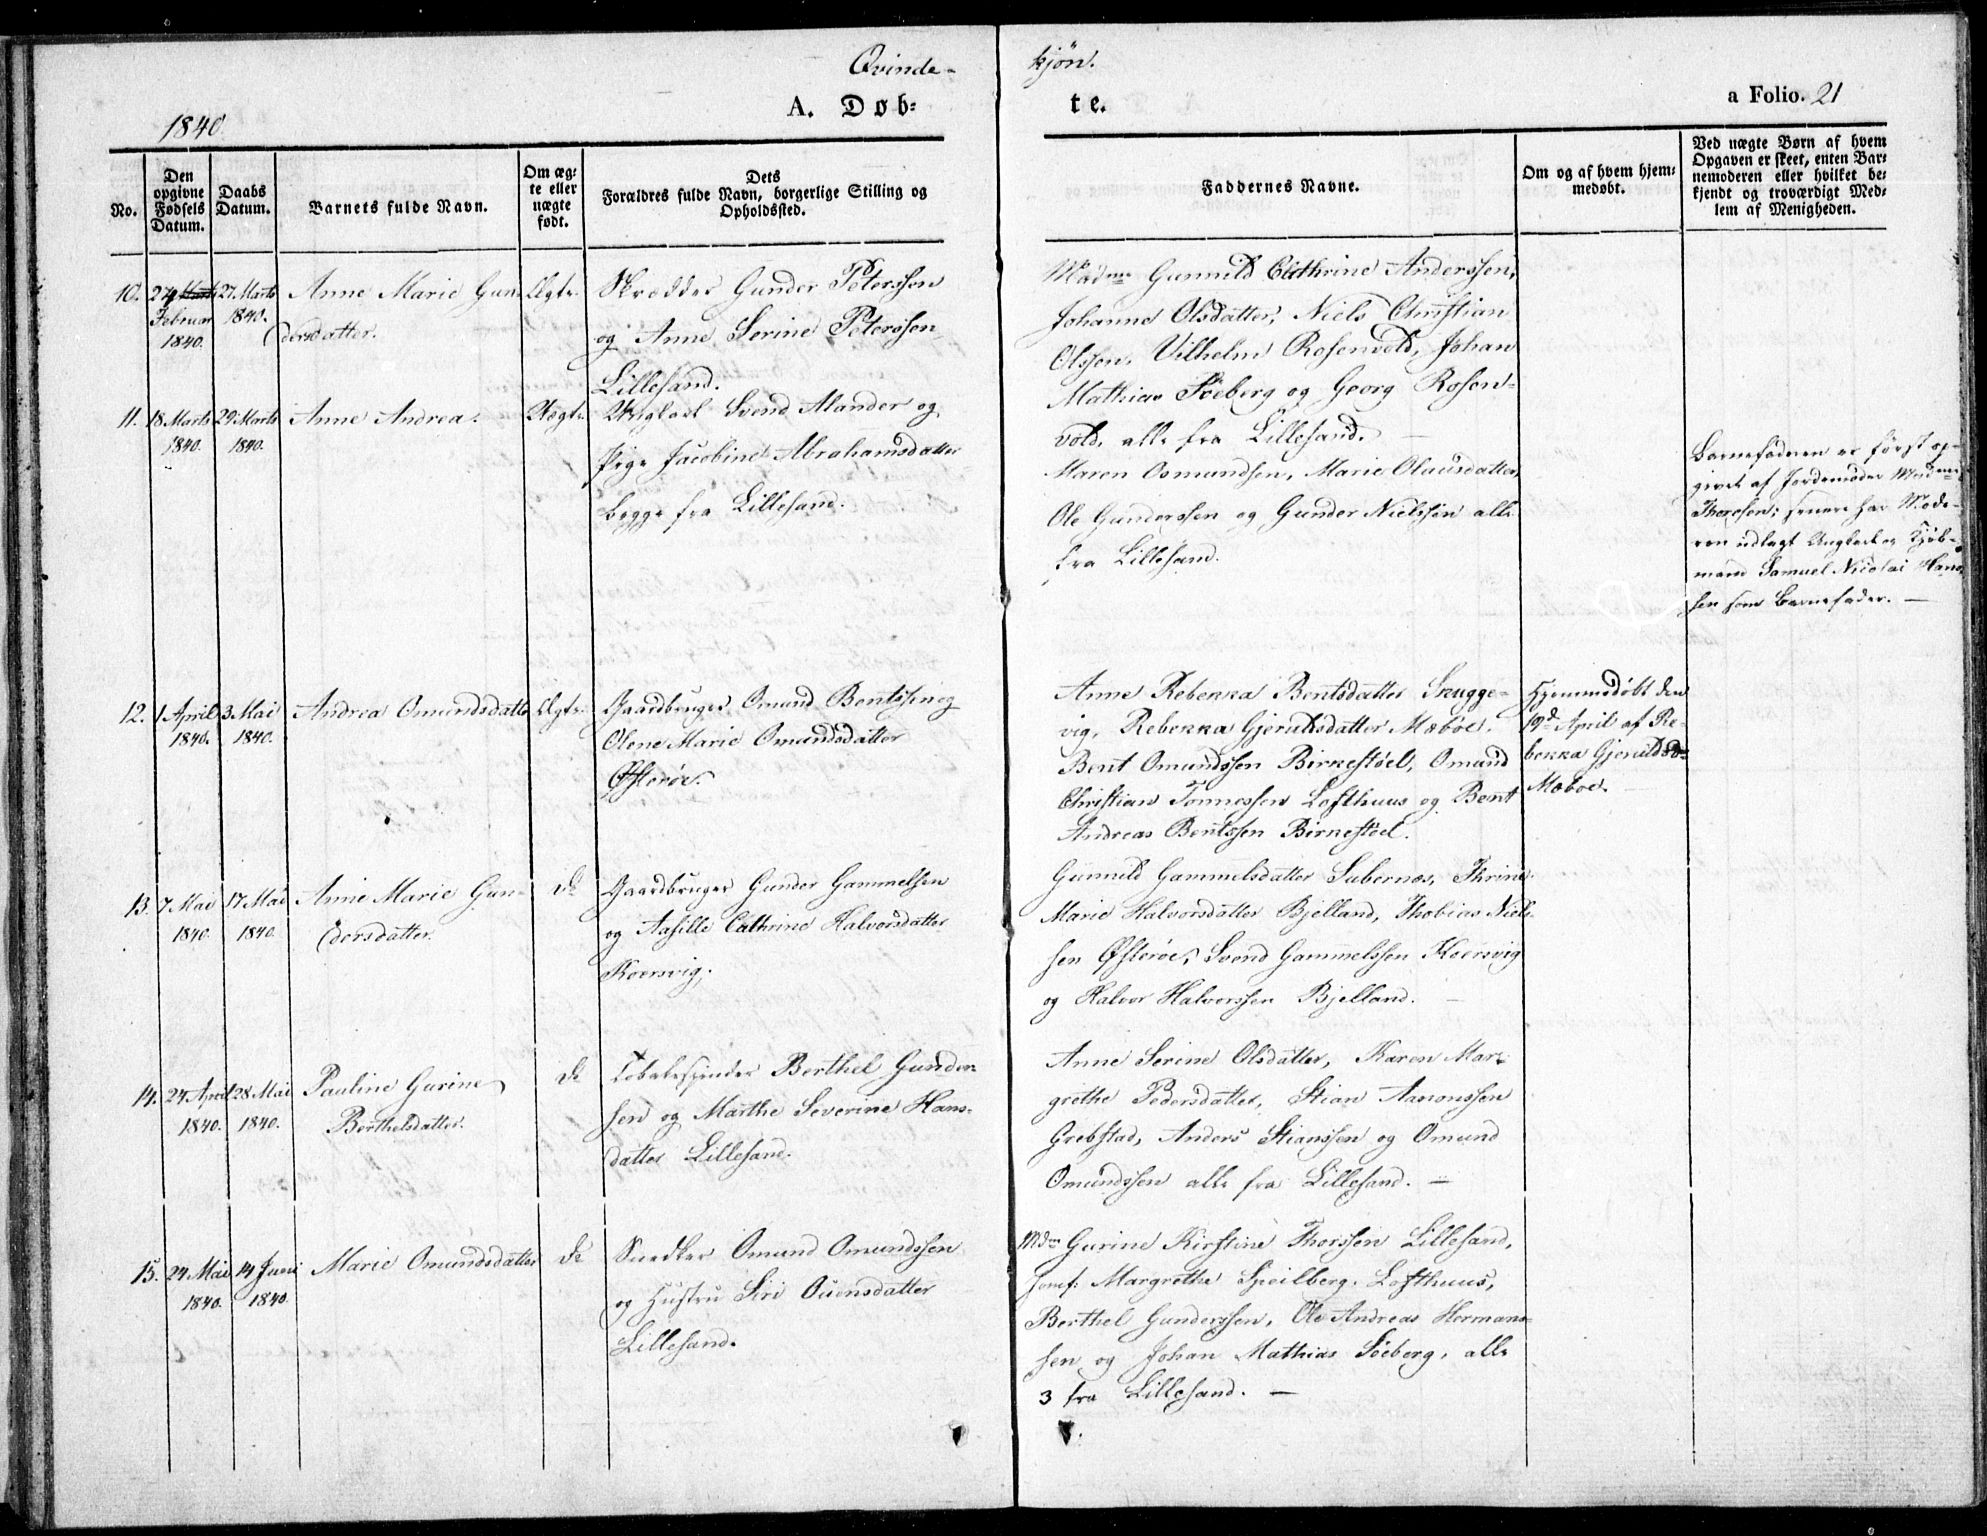 Qvinde-
kjøn.
A. Døb-
te.
a Folio. 21
1840
No.
Den opgivne Fødsels Datum.
Daabs Datum.
Barnets fulde Navn.
Om ægte eller uægte født.
Dets
Forældres fulde Navn, borgerlige Stilling og
Opholdssted.
Faddernes Navne.
Om og af hvem hjem-
medøbt.
Ved uægte Børn af hvem
Opgaven er skeet, enten Bar-
nemoderen eller hvilket be-
kjendt og troværdigt Med-
lem af Menigheden.
10. 24 Marts 27 Marts Anne Marie Gun- Ægte. Skrædder Gunder Peterssen
Februar 1840. dersdatter. og Anne Serine Peterssen
1840. Lillesand.
Madme Gunnild Cathrine Anderssen,
Johanne Olsdatter, Niels Christian
Olssen, Vilhelm Rosenvold, Johan
Mathias Søeberg og Georg Rosen-
vold, alle fra Lillesand.
11. 18 Marts 29 Marts Anne Andrea. Uægte Ungkarl Svend Alander og
1840. 1840. Pige Jacobine Abrahamsdatter
begge fra Lillesand.
Maren Osmundsen, Marie Olausdatter,
Ole Gunderssen og Gunder Nielssen alle
fra Lillesand.
Barnefaderen er først op-
givet af Jordemoder Madme
Thoresen; senere har Mode-
ren udlagt Ungkarl og Kjøb-
mand Samuel Nicolai Hans-
sen som Barnefader. —
12. 1 April 3 Mai Andrea Omundsdatter Ægte. Gaardbruger Omund Bentssen og
1840. 1840. Olene Marie Omundsdatter
Østerøe.
Anne Rebekka Bentsdatter Skugge-
vig, Rebekka Gjerulsdatter Møbøe,
Bent Omundssen Birkestøel, Omund
Christian Tønnessen Lofthuus og Bent
Andreas Bentssen Birkestøel.
Hjemmedøbt den
19d April af Re-
bekka Gjeruldsdr
Møboe.
13. 7 Mai 17 Mai Anne Marie Gun- do Gaardbruger Gunder Gammelsen
1840. 1840. dersdatter. og Aasille Cathrine Halvorsdatter
Koersvig.
Gunnild Gammelsdatter Sabernes, Thrine
Marie Halvorsdatter Bjelland, Thobias Niels-
sen Østerøe, Svend Gammelssen Koersvig
og Halvor Halvorssen Bjelland.
14. 24 April 28 Mai Pauline Gurine do Tobakspinder Berthel Gunder-
1840. 1840. Berthelsdatter. sen og Marthe Severine Hans-
datter Lillesand.
Anne Serine Olsdatter, Karen Mar-
grethe Pedersdatter, Stian Aanonssen
Grebstad, Anders Stianssen og Omund
Omundssen alle fra Lillesand. —
15. 24 Mai 14 Juni Marie Omundsdatter do Snedker Omund Omundssen
1840. 1840. og Hustru Siri Ouensdatter
Lillesand.
Mdme Gurine Kirstine Thorssen Lillesand,
Jomf. Margrethe Speilberg, Lofthuus,
Berthel Gunderssen, Ole Andreas Hermans-
sen og Johan Mathias Søeberg, alle
3 fra Lillesand. —